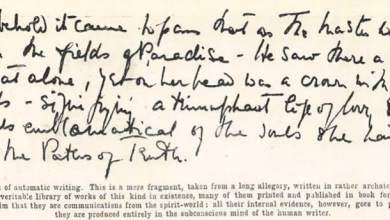 behold it came to pass that as The Master w
the fields of Paradise - He saw there a
at alone, yet on her head was a crown with
s - signifying a triumphant life of love, &
emblematical of the souls she ha
the Paths of Truth.
n of automatic writing. This is a mere fragment, taken from a long allegory, written in rather archaic
veritable library of works of this kind in existence, many of them printed and published in book for
im that they are communications from the spirit-world; all their internal evidence, however, goes to
they are produced entirely in the subconscious mind of the human writer.